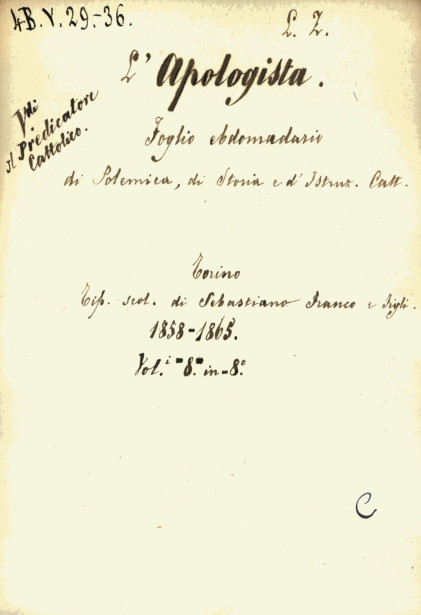 4B.V.29-36.
L. Z.
L'Apologista.
Vdi
il Predicatore
Cattolico.
Foglio ebdomadario
di Polemica, di Storia e d'Istruz. Catt.
Torino
Tip. scol. di Sebastiano Franco e Figli.
1858-1865.
Vol.i 8. in-8º
C